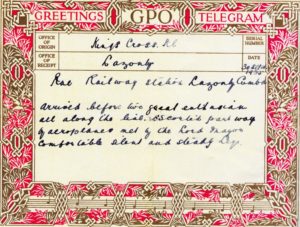 GREETINGS GPO TELEGRAM
OFFICE OF ORIGIN
Kings Cross
SERIAL NUMBER
OFFICE OF RECEIPT
Lazonby
DATE
Railway Station Lazonby
arrived before two great enthusiasm
all along the line. Escorted part way
by aeroplanes met by the Lord Mayor
comfortable silent and steady